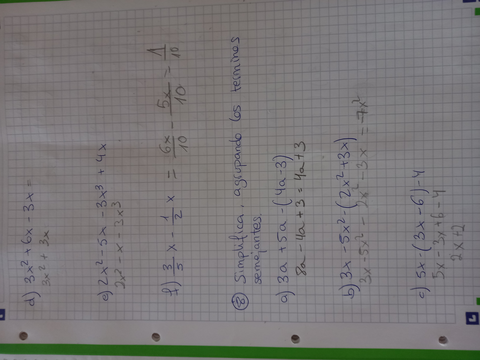 d) 3x² + 6x - 3x =
3x² + 3x
e) 2x² - 5x - 3x³ + 4x
2x² - x - 3x³
f) 3/5 x - 1/2 x = 6x/10 - 5x/10 = 1/10
⑧ Simplifica, agrupando los términos
semejantes.
a) 3a + 5a - (4a - 3)
8a - 4a + 3 = 4a + 3
b) 3x - 5x² - (2x² + 3x)
3x - 5x² - 2x² - 3x = -7x²
c) 5x - (3x - 6) - 4
5x - 3x + 6 - 4
2x + 2